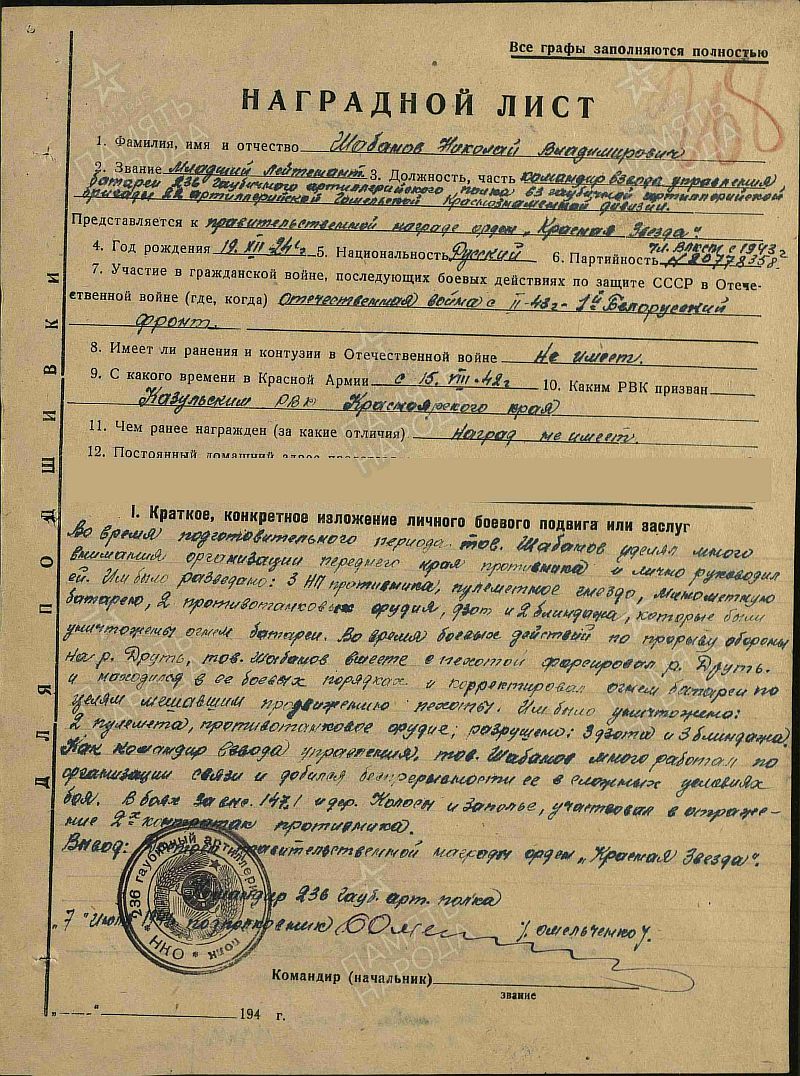 Все графы заполняются полностью
218
НАГРАДНОЙ ЛИСТ
1. Фамилия, имя и отчество Шабанов Николай Владимирович
2. Звание Младший лейтенант 3. Должность, часть командир взвода управления
батареи 236 гаубичного артиллерийского полка 63 гаубичной артиллерийской
бригады 22 артиллерийской Гомельской Краснознаменной дивизии.
Представляется к правительственной награде орден „Красная Звезда".
4. Год рождения 19.XII.24г. 5. Национальность Русский 6. Партийность чл. ВЛКСМ с 1943г
№20778358.
7. Участие в гражданской войне, последующих боевых действиях по защите СССР в Отече-
ственной войне (где, когда) Отечественная война с II-43г - 1й Белорусский
фронт.
8. Имеет ли ранения и контузии в Отечественной войне Не имеет.
9. С какого времени в Красной Армии с 15.VIII-42г 10. Каким РВК призван
Казульским РВК Красноярского края
11. Чем ранее награжден (за какие отличия) Наград не имеет.
12. Постоянный домашний адрес
I. Краткое, конкретное изложение личного боевого подвига или заслуг
Во время подготовительного периода тов. Шабанов уделял много
внимания организации переднего края противника и лично руководил
ей. Им было разведано: 3 НП противника, пулеметное гнездо, минометную
батарею, 2 противотанковых орудия, дзот и 2 блиндажа, которые были
уничтожены огнем батареи. Во время боевых действий по прорыву обороны
на р. Друть, тов. Шабанов вместе с пехотой форсировал р. Друть.
и находился в ее боевых порядках и корректировал огнем батареи по
целям мешавшим продвижению пехоты. Им было уничтожено:
2 пулемета, противотанковое орудие; разрушено: 3 дзота и 3 блиндажа.
Как командир взвода управления, тов. Шабанов много работал по
организации связи и добился беспрерывности ее в сложных условиях
боя. В боях за выс. 147.1 и дер. Колосы и Заполье, участвовал в отраже-
ние 2х контратак противника.
Вывод: правительственной награды орден „Красная Звезда".
Командир 236 Гауб. арт. полка
„7" Июля 1944г. подполковник /Омельченко/.
236 гаубичный артиллерий полк * НКО *
Командир (начальник)
звание
„ " 194 г.
ДЛЯ ПОДШИВКИ
ПАМЯТЬ НАРОДА